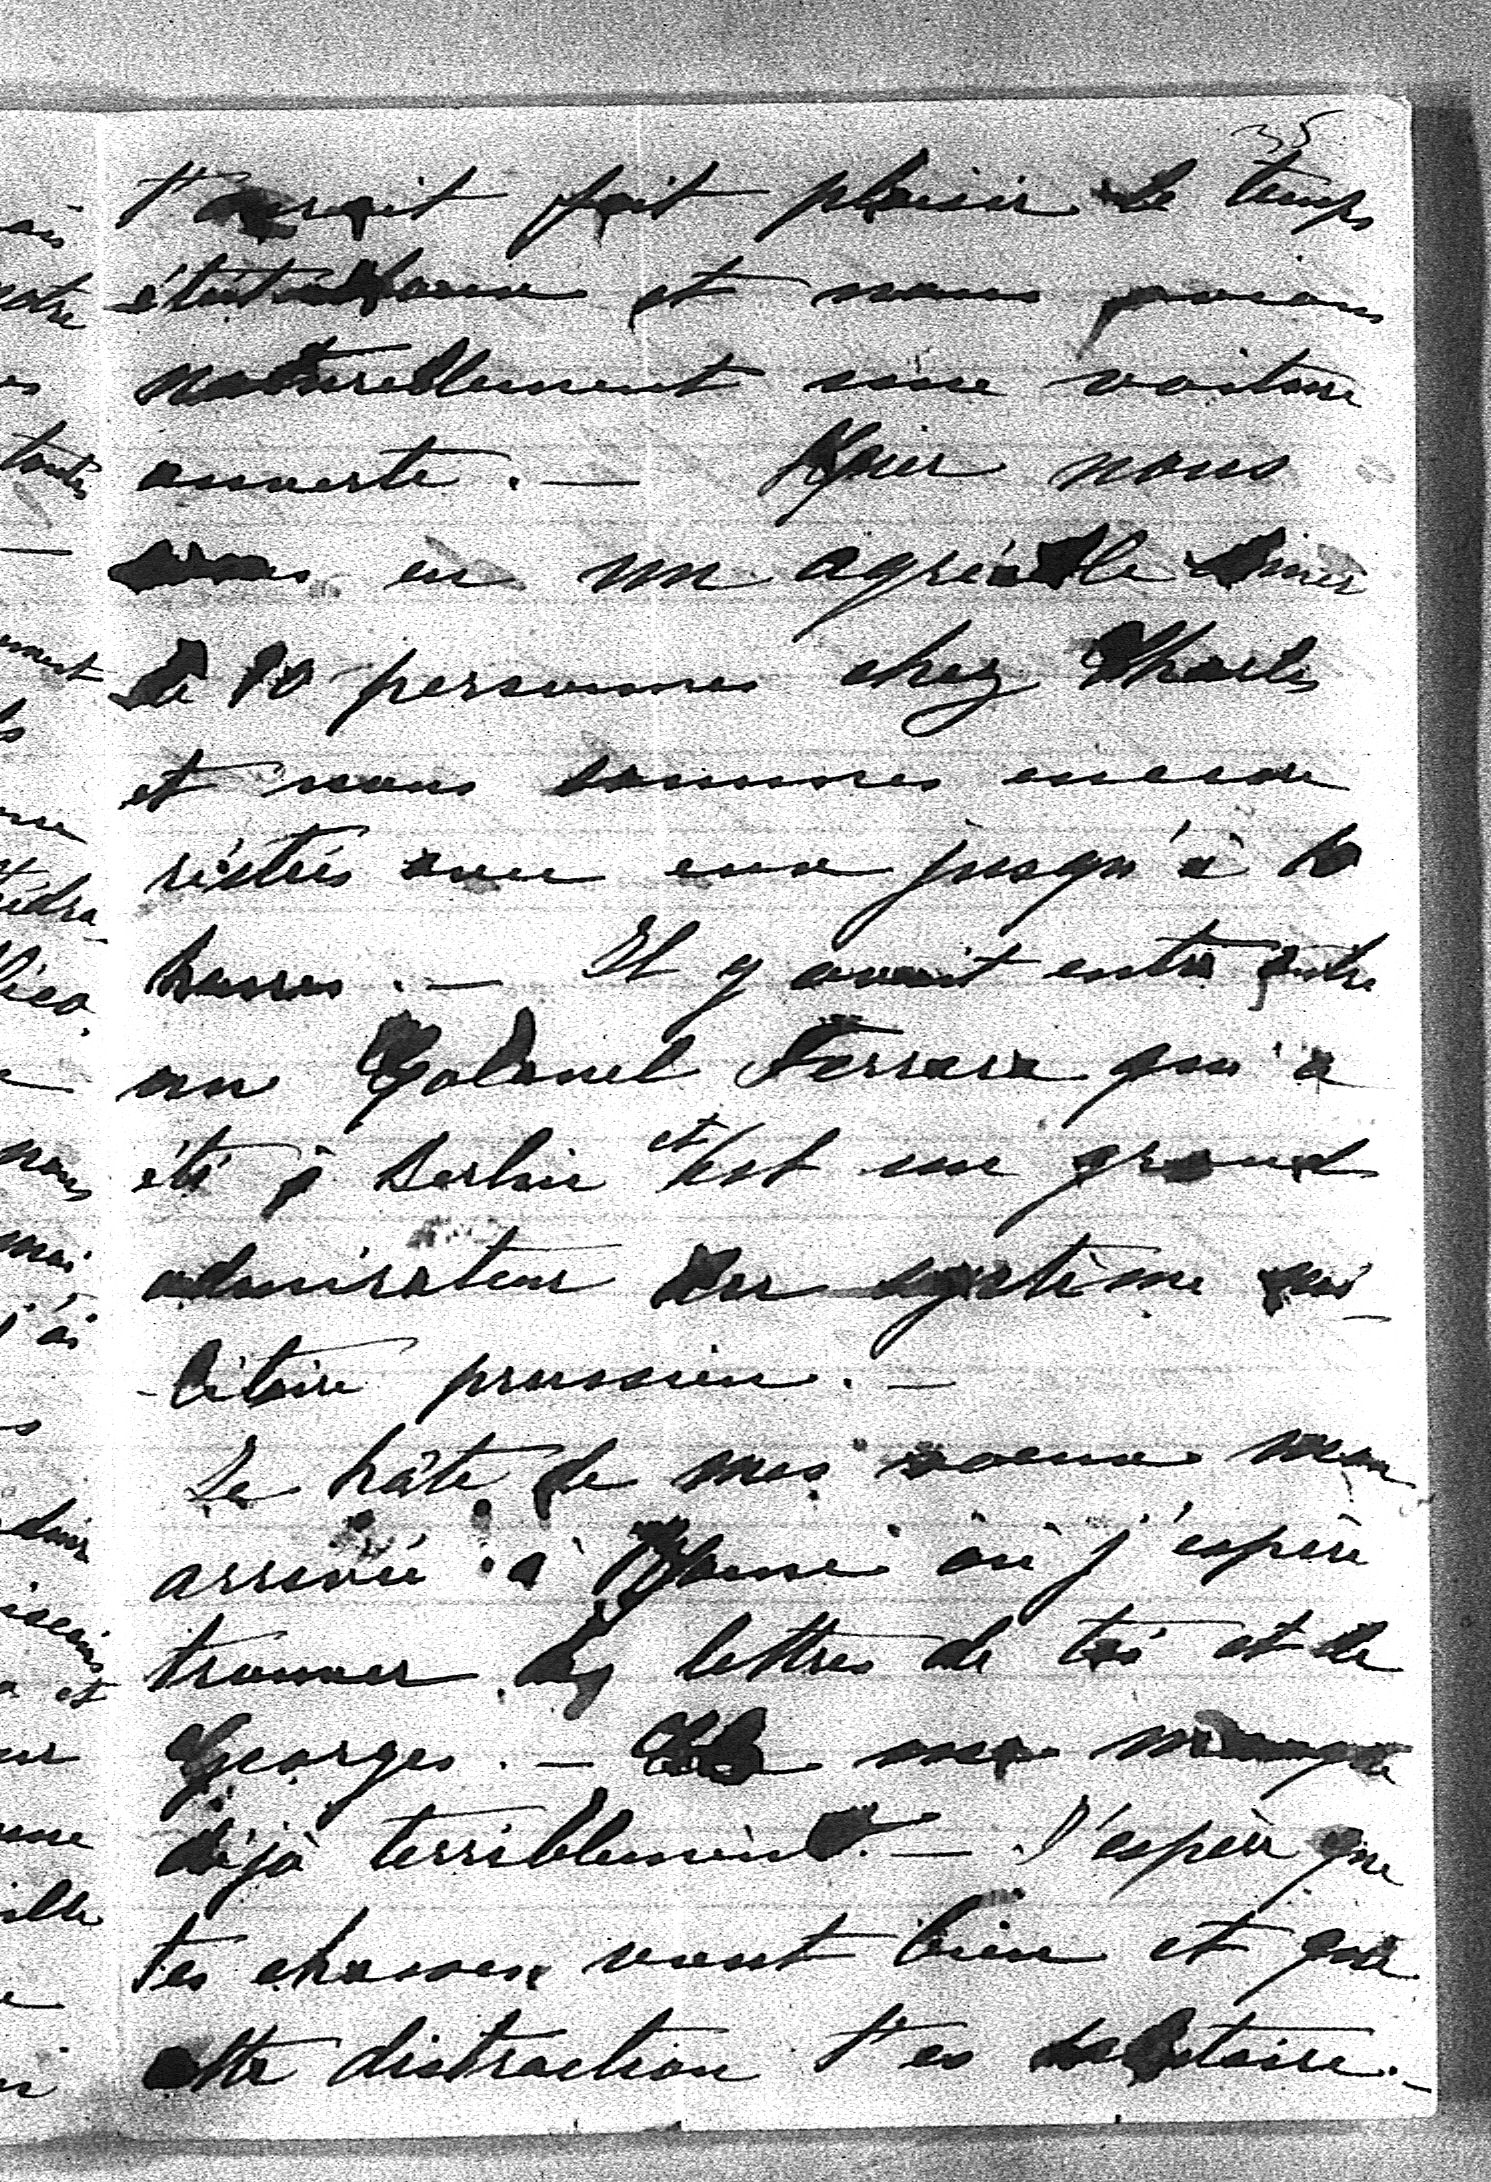 35
t'aurait fait plaisir le temps
était doux et nous avions
naturellement une voiture
ouverte. — Hier nous
avons eu un agréable diner
de 10 personnes chez Charles
et nous sommes encore
réstés avec eux jusqu'à 10
heures. — Il y avait entre autre
un Colonel Ferrara qui a
été à Berlin et est un grand
admirateur du système mi-
-litaire prussien. —
Je hâte de mes voeux mon
arrivée à Rome où j'espère
trouver des lettres de toi et de
Georges. — me manque
déjà terriblement. — J'espère que
tes chasses vont bien et que
cette distraction t'es salutaire. —